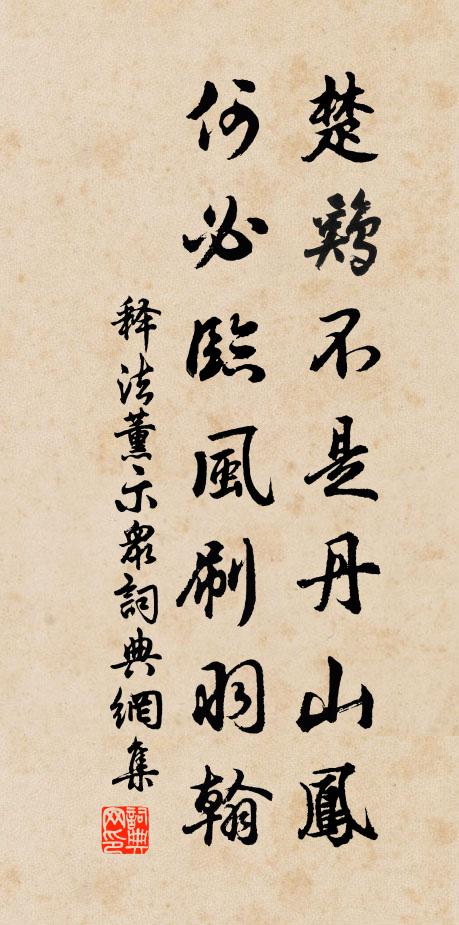 楚鷄不是丹山鳳
何必臨風刷羽翰
释法薰示衆詞典網集
詞典網印